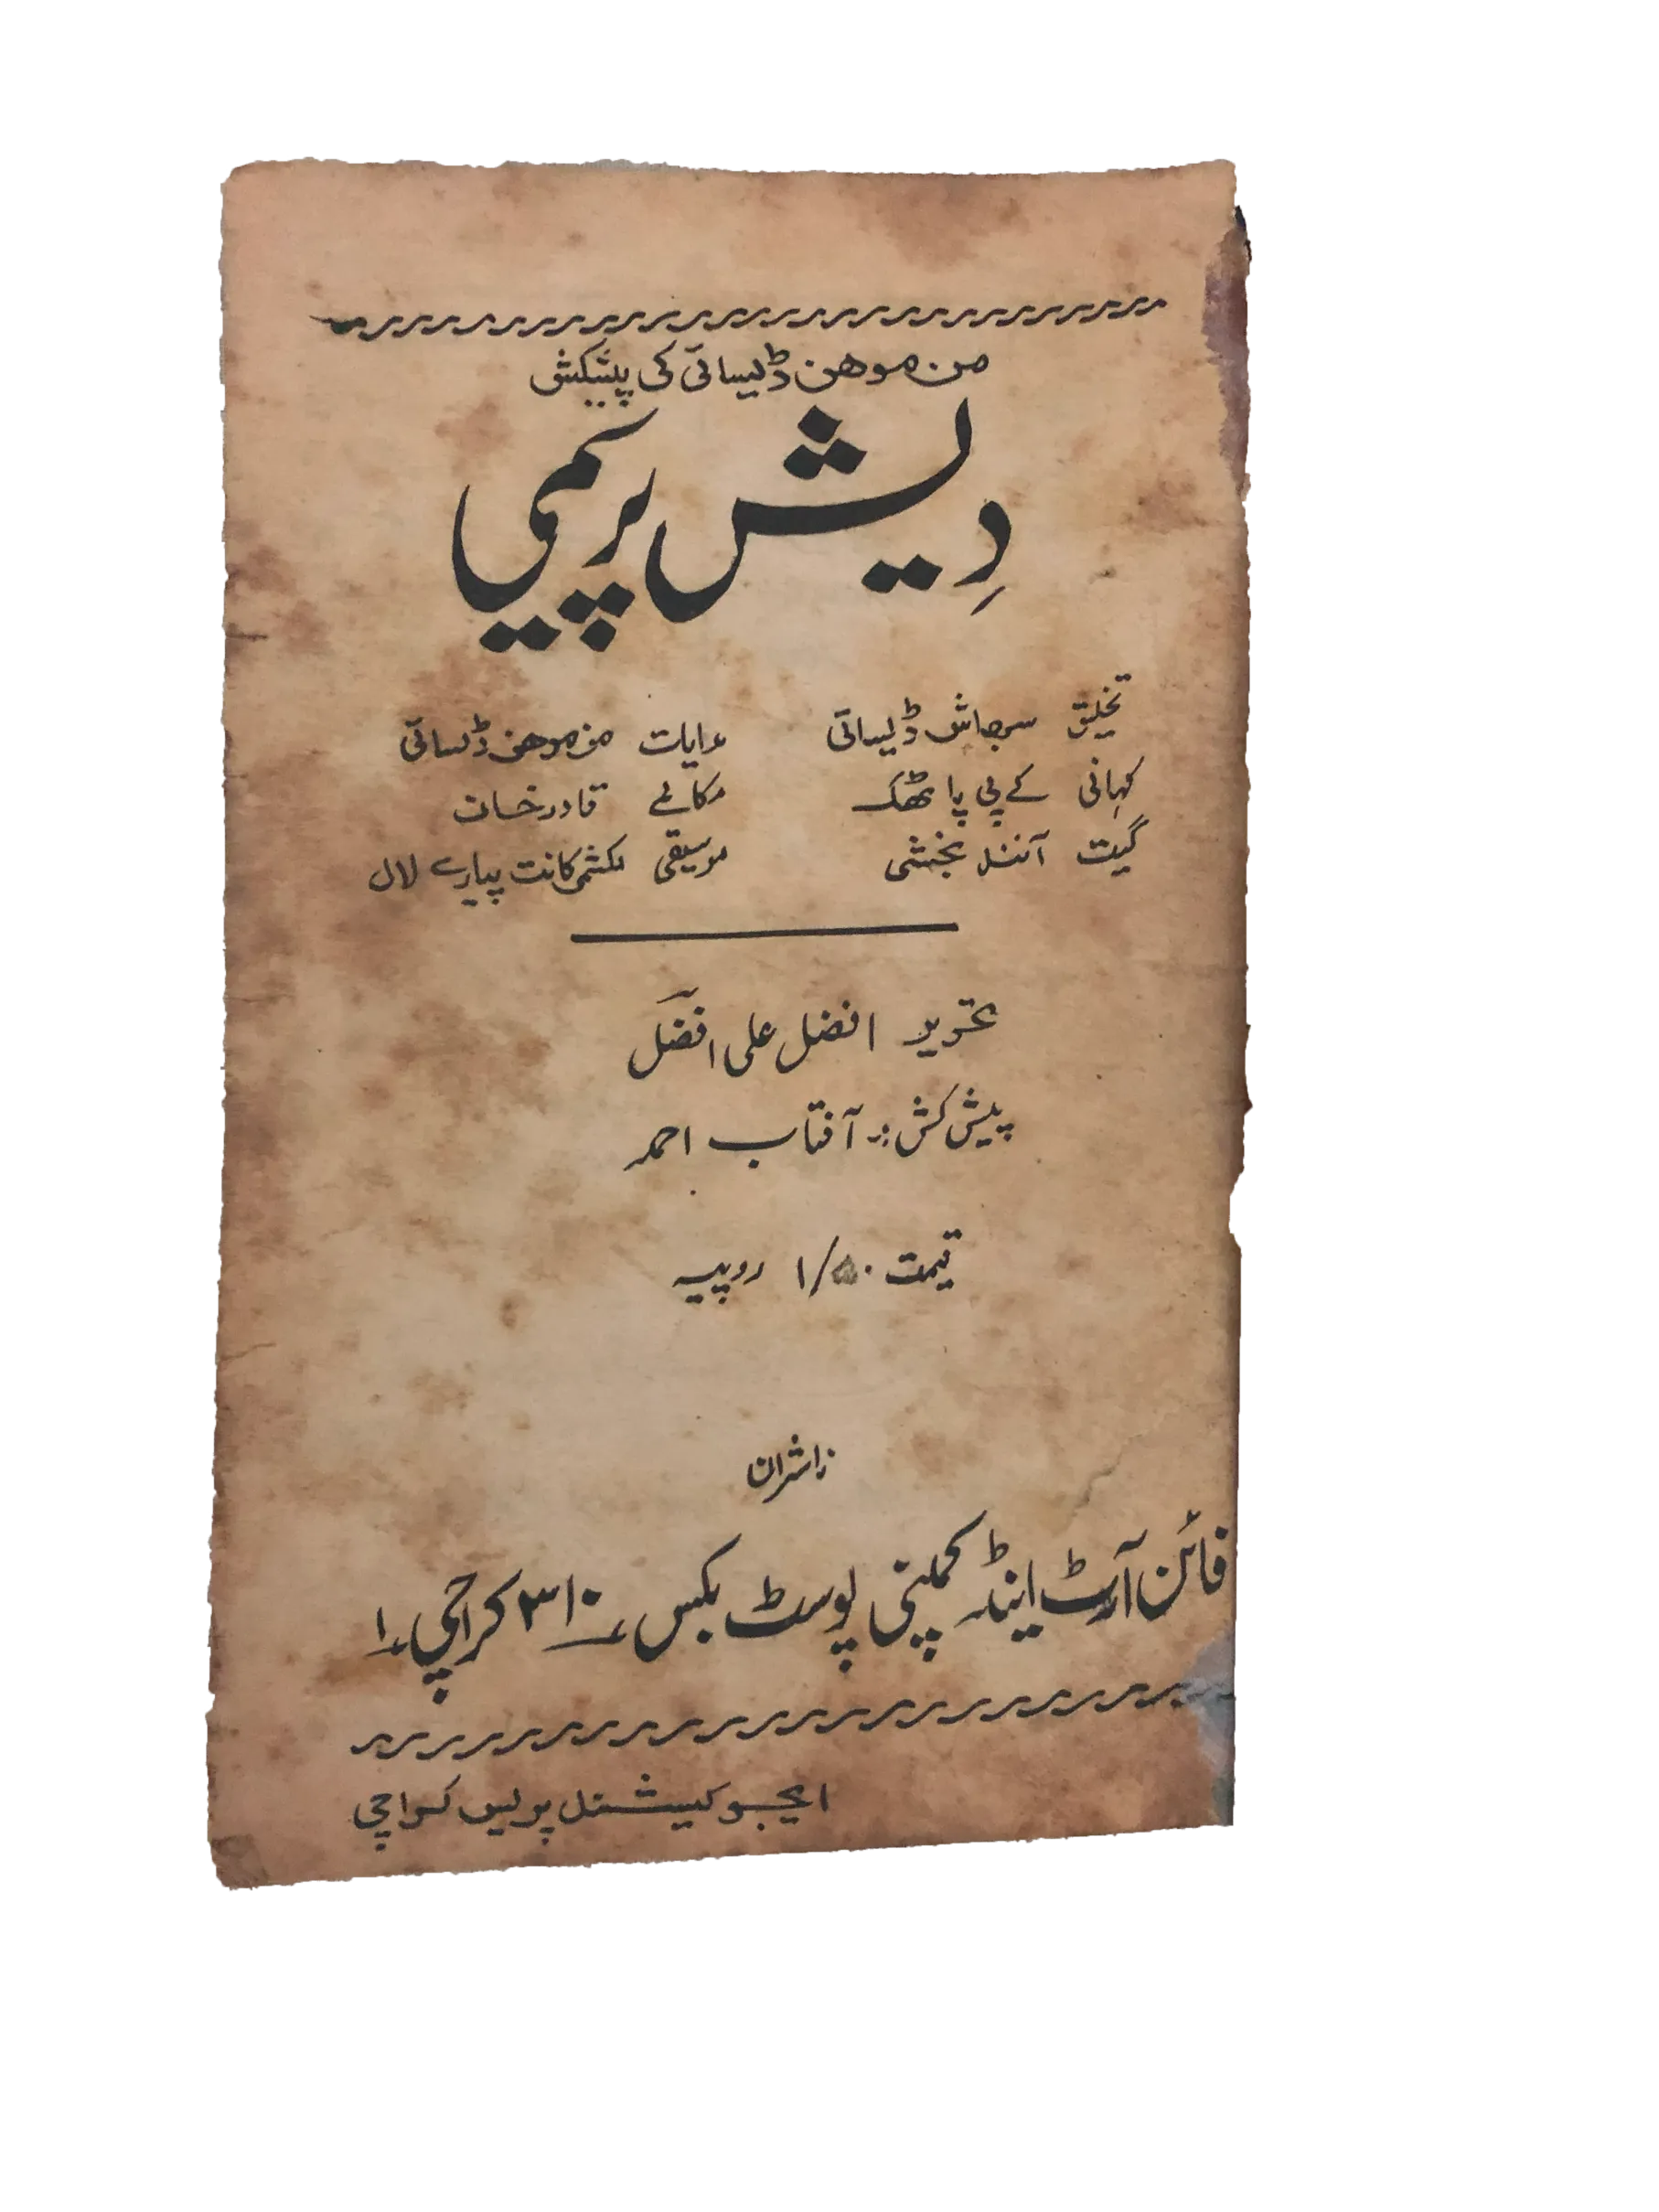 من موھن ڈیسائی کی پیشکش
دیش پریمی
تخلیق سبھاش ڈیسائی ہدایات من موھن ڈیسائی
کہانی کے پی پاٹھک مکالمے قادر خان
گیت آنند بخشی موسیقی لکشمی کانت پیارے لال
تحریر افضل علی افضل
پیش کش :- آفتاب احمد
قیمت ۱/۵۰ روپیہ
ناشران
فائن آرٹ اینڈ کمپنی پوسٹ بکس ۳۱۰ کراچی ۱
ایجوکیشنل پریس کراچی